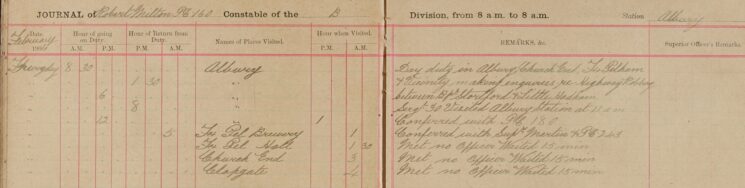 JOURNAL of Robert Milton PC 160 Constable of the B Division, from 8 a.m. to 8 a.m. Station Albury
Date. Hour of going on Duty. Hour of Return from Duty. Names of Places Visited. Hour when Visited. REMARKS, &c. Superior Officer's Remarks
February A.M. P.M. P.M. A.M. P.M. A.M.
8 30 Albury Day duty in Albury Church End, Fx Pelham
1 30 " & Vicinity, making enquiries re Highway Robbery
6 " between Bp Stortford & Little Hadham
8 " Sergt 30 Visited Albury Station at 11 am
12 " 1 Conferred with PC 180
5 Fx Pel Bruwey 1 Conferred with Supt Martin & PC 243
Fx Pel Hall 1 30 Met no Officer Waited 15 min
Church End 3 Met no Officer Waited 15 min
Clapgate 4 Met no Officer Waited 15 min